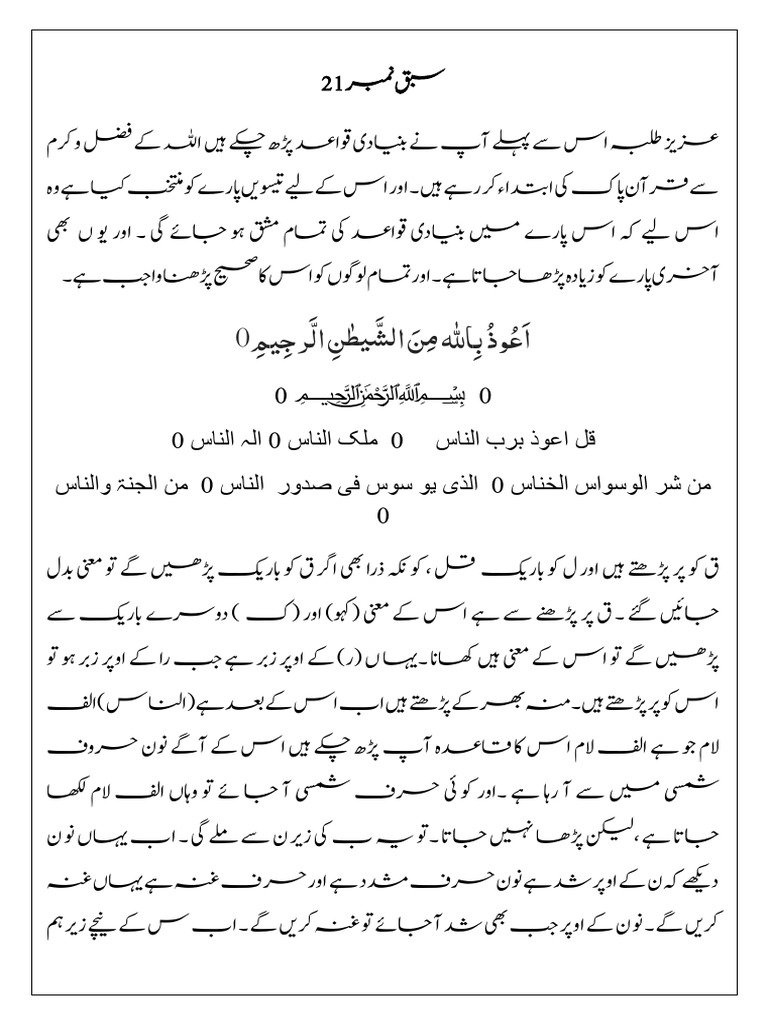 سبق نمبر 21
عزیز طلبہ اس سے پہلے آپ نے بنیادی قواعد پڑھ چکے ہیں اللہ کے فضل و کرم
سے قرآن پاک کی ابتداء کر رہے ہیں۔ اور اس کے لیے تیسویں پارے کو منتخب کیا ہے وہ
اس لیے کہ اس پارے میں بنیادی قواعد کی تمام مشق ہو جائے گی ۔ اور یو ں بھی
آخری پارے کو زیادہ پڑھا جاتا ہے۔ اور تمام لوگوں کو اس کا صحیح پڑھنا واجب ہے۔
اَعُوذُ بِاللٰه مِنَ الشَّیطٰنِ الَّرجِیمِ 0
0 بِسْمِ اللَّهِ الرَّحْمَٰنِ الرَّحِيمِ 0
قل اعوذ برب الناس 0 ملک الناس 0 الہ الناس 0
من شر الوسواس الخناس 0 الذی یو سوس فی صدور الناس 0 من الجنۃ والناس
0
ق کو پر پڑھتے ہیں اور ل کو باریک قل ، کو نکہ ذرا بھی اگر ق کو باریک پڑھیں گے تو معنی بدل
جائیں گئے ۔ ق پر پڑھنے سے ہے اس کے معنی (کہو) اور (ک ) دوسرے باریک سے
پڑھیں گے تو اس کے معنی ہیں کھانا۔ یہا ں (ر) کے اوپر زبر ہے جب را کے اوپر زبر ہو تو
اس کو پر پڑھتے ہیں۔ منہ بھر کے پڑھتے ہیں اب اس کے بعد ہے (الناس) الف
لام جو ہے الف لام اس کا قاعدہ آپ پڑھ چکے ہیں اس کے آگے نون حروف
شمسی میں سے آ رہا ہے ۔ اور کو ئی حرف شمسی آ جا ئے تو وہاں الف لام لکھا
جاتا ہے ، لیکن پڑھا نہیں جاتا۔ تو یہ ب کی زیر ن سے ملے گی ۔ اب یہاں نو ن
دیکھے کہ ن کے اوپر شد ہے نون حرف مشدد ہے اور حرف غنہ ہے یہاں غنہ
کریں گے۔ نون کے اوپر جب بھی شد آ جائے تو غنہ کریں گے۔ اب س کے نیچے زیر ہم